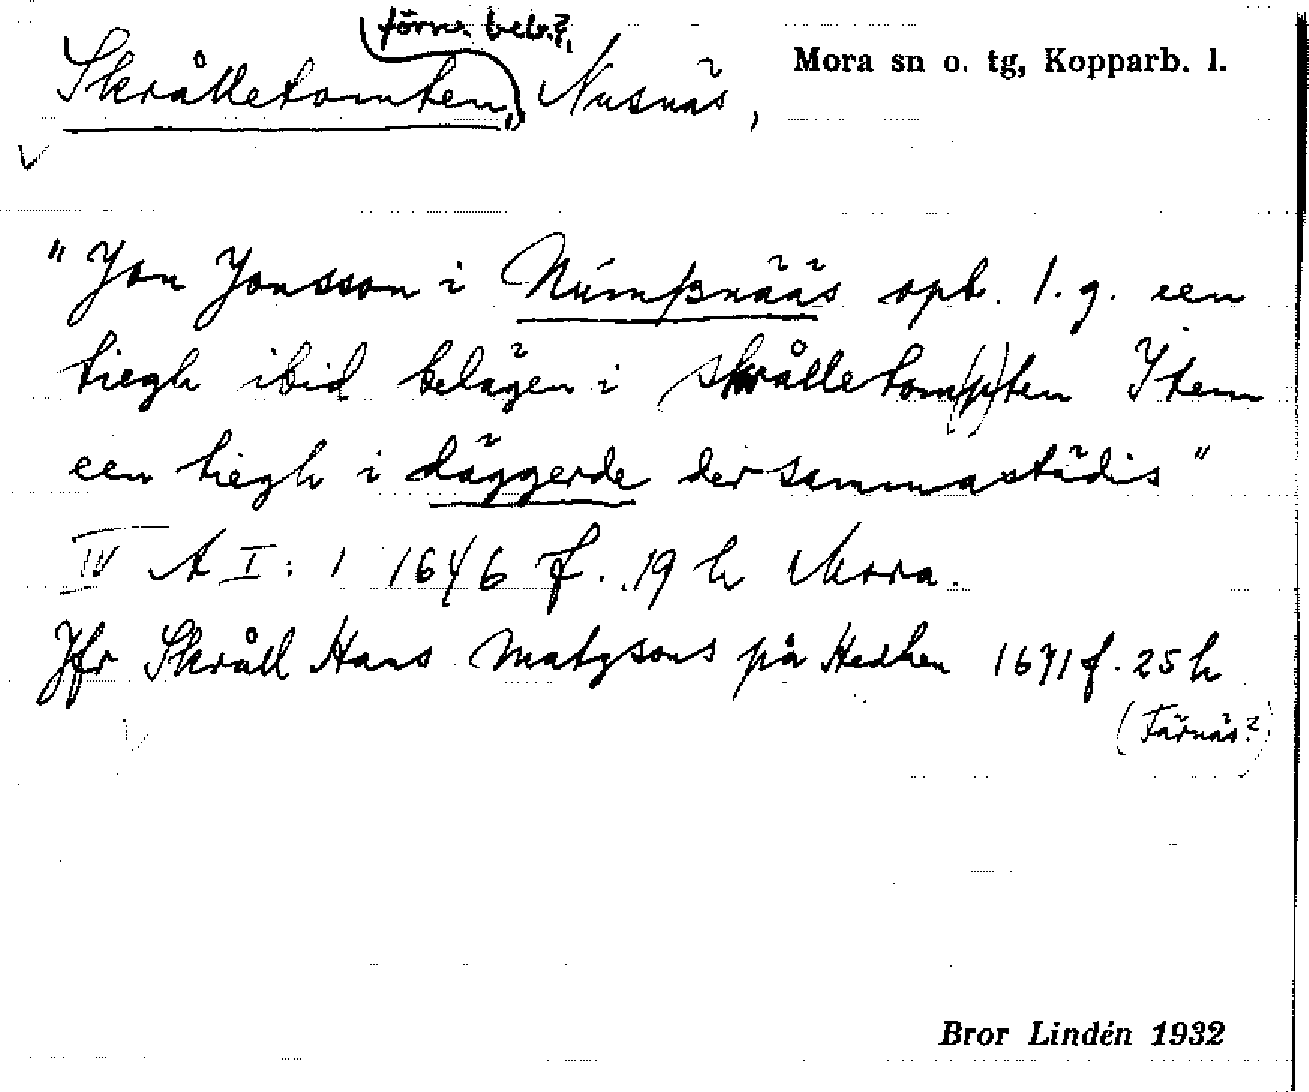 förr. bebr.?
Skrålletomten, Nusnäs, Mora sn o. tg, Kopparb. l.
"Jon Jonsson i Númßnääs opb. 1. g. een
tiegh ibid belägen i skrålletom(p)ten Item
een tiegh i däggerde dersammastädis"
IV A I: 1 1646 f. 19 h Mora.
Jfr Skråll Hans Matzsons på Hedhen 1671 f. 25 h
(Färnäs?)
Bror Lindén 1932